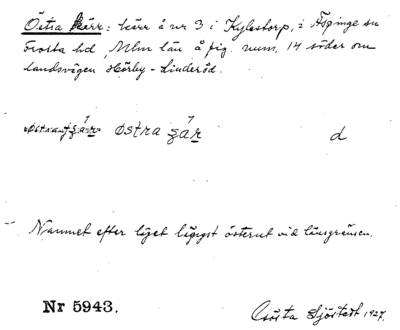 Östra kärr: kärr å nr 3 i Kylestorp, i Äspinge sn
Frosta hd, Mlm län å fig. num. 14 söder om
landsvägen Hörby - Linderöd.
östra d
Namnet efter läget längst österut vid länsgränsen.
Nr 5943.
Gösta Sjöstedt 1927.